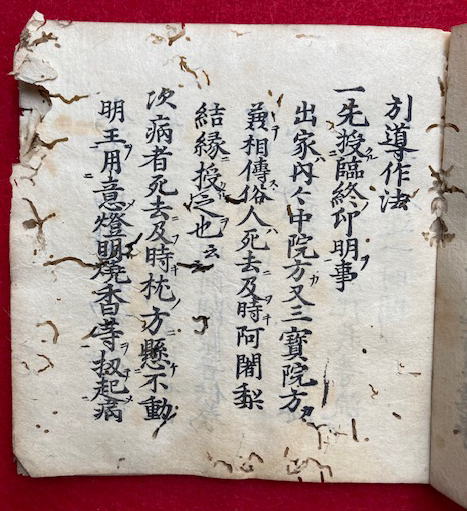 引導作法
一先授臨終印明事
出家内々中院方又三寶院方
義相傳俗人死去及時阿闍梨
結縁授也云云
次病者死去及時枕方懸不動
明王用意燈明燒香等扱起病